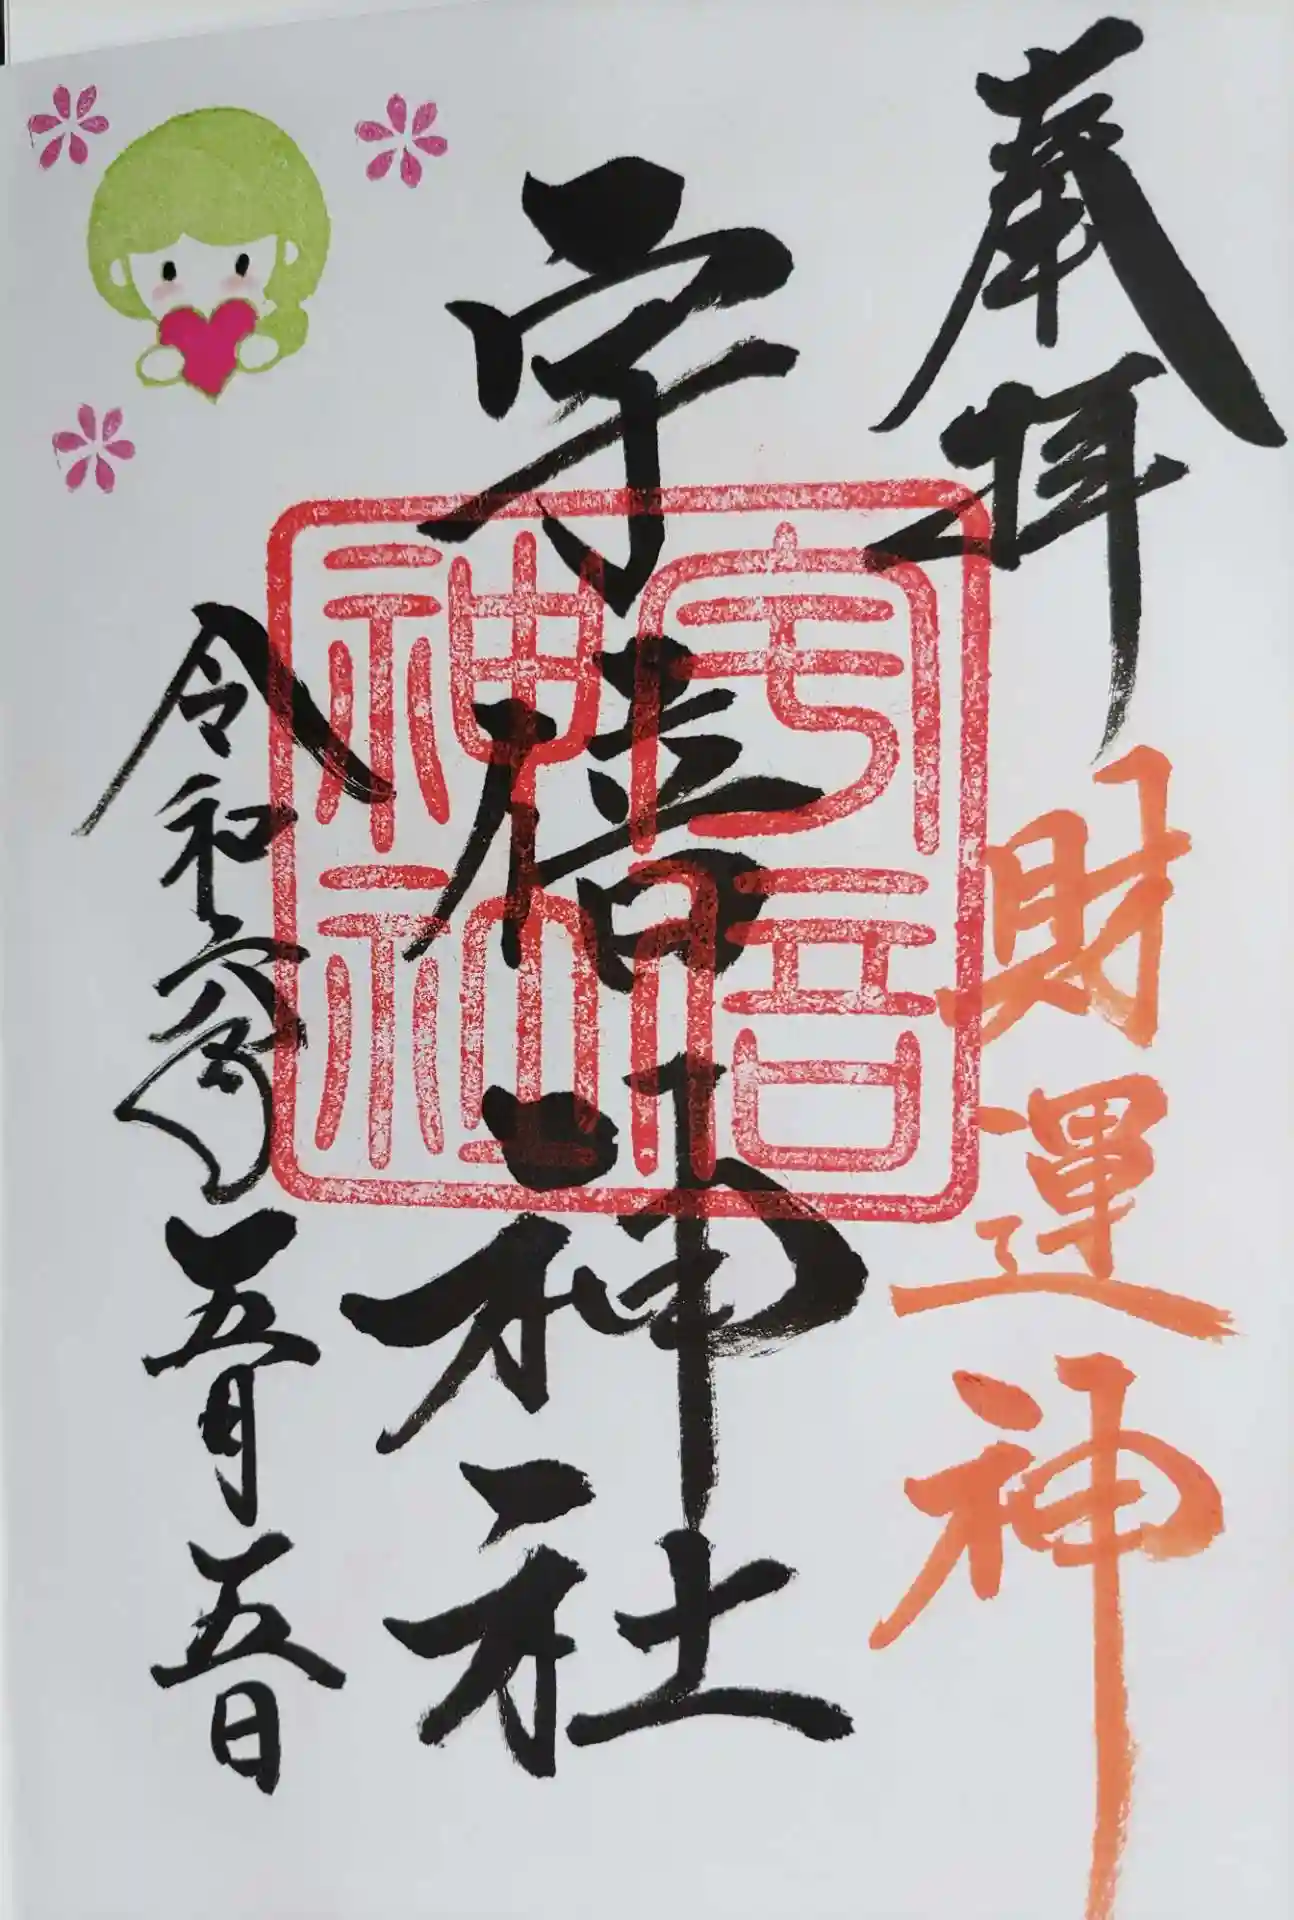 奉拝
財運神
宇倍神社
宇倍
神社
令和六年五月五日